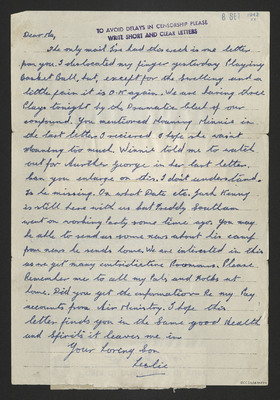 TO AVOID DELAYS IN CENSORSHIP PLEASE
WRITE SHORT AND CLEAR LETTERS
8 SEP 1942
Dear Ma,
The only mail I've had this week is one letter
from you. I dislocated my finger yesterday playing
Basket Ball, but, except for the swelling and a
little pain it is O.K again. We are having three
Plays tonight by the Dramatic Club of our
compound. You mentioned having Winnie in
the last letter I recieved I hope she wasnt
too much. Winnie told me to watch
out for Another George in her last letter.
Can you enlarge on this. I don't understand.
Is he missing. On what Date etc. Jack Kenny
is still here with us but Paddy
went on working Party some time ago. You may
be able to send us some news about his camp
from news he sends home. We are interested in this
as we get many contradictive Rumours. Please
Remember me to all my Pals and Folks at
home. Did you get the information Re my Pay
accounts from Air Ministry. I hope this
letter finds you in the Same good Health
and Spirits it leaves me in
Your Loving Son
Leslie